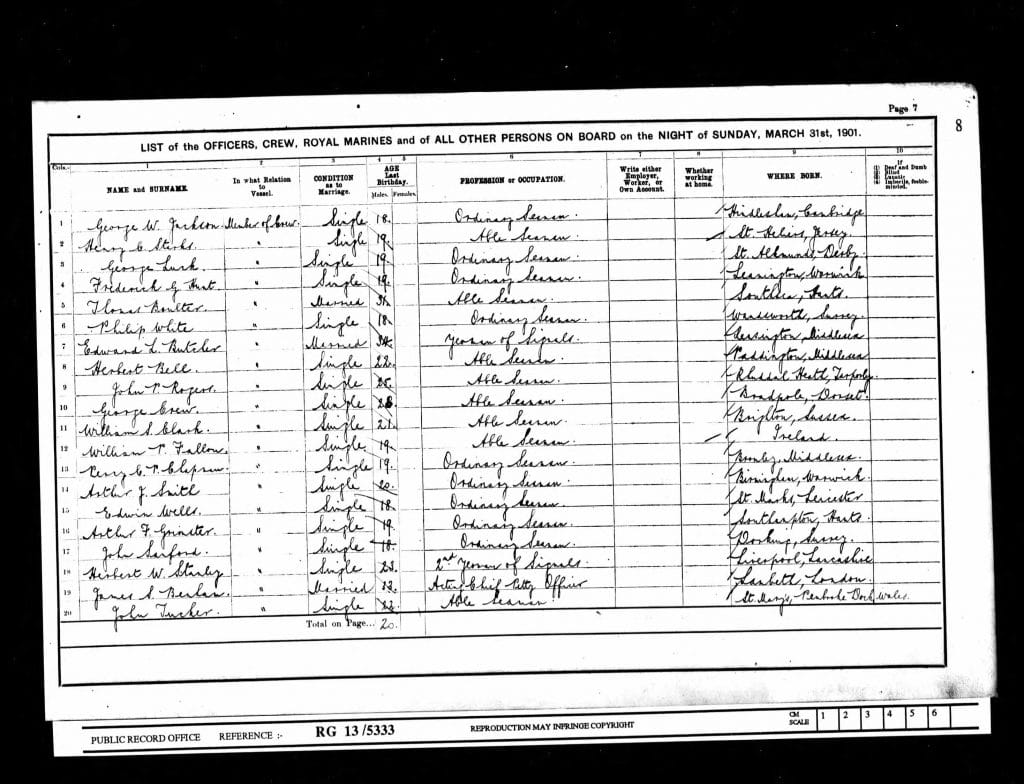 Page 7
8
LIST of the OFFICERS, CREW, ROYAL MARINES and of ALL OTHER PERSONS ON BOARD on the NIGHT of SUNDAY, MARCH 31st, 1901.
Cols.— 1 2 3 4 5 6 7 8 9 10
NAME and SURNAME
In what Relation to Vessel.
CONDITION as to Marriage.
AGE Last Birthday.
Males. Females.
PROFESSION or OCCUPATION.
Write either Employer, Worker, or Own Account.
Whether working at home.
WHERE BORN.
If
(1) Deaf and Dumb
(2) Blind
(3) Lunatic
(4) Imbecile, feeble-minded.
1 George W. Jackson Member of Crew. Single 18. Ordinary Seaman. Cambridge
2 Henry C. " Single 19. Able Seaman. St. Heliers, Jersey
3 George Lusk. " Single 19. Ordinary Seaman. St. Alkmunds, Derby
4 Frederick G. Hunt " Single 19. Ordinary Seaman. Leamington, Warwick
5 Thomas Boulter " Married Able Seaman. Southsea, Hants.
6 Philip White " Single 18. Ordinary Seaman. Wandsworth, Surrey
7 Edward L. Butcher " Married 34. Yeoman of Signals. Middlesex
8 Herbert Bell. " Single 22. Able Seaman. Paddington, Middlesex
9 John P. Rogers. " Single 25. Able Seaman. Heath, Tarporley
10 George Crew. " Single Able Seaman. Bradpole, Dorset.
11 William S. Clark. " Single 21. Able Seaman. Brighton, Sussex.
12 William P. Fallon. " Single 19. Able Seaman. Ireland.
13 Percy C. P. Clapson. " Single 19. Ordinary Seaman. Bromley, Middlesex.
14 Arthur J. Smith " Single 20. Ordinary Seaman. Birmingham, Warwick.
15 Edwin Wells. " Single 18. Ordinary Seaman. St. Marks, Leicester
16 Arthur F. " Single 19. Ordinary Seaman. Southampton, Hants.
17 John Sanford. " Single 18. Ordinary Seaman. Dorking, Surrey.
18 Herbert W. Stanley " Single 23. 2nd Yeoman of Signals. Liverpool, Lancashire
19 James S. " Married Acting Chief Petty Officer Lambeth, London.
20 John Tucker. " Single Able Seaman. St. Mary's, Pembroke Dock, Wales.
Total on Page... 20.
PUBLIC RECORD OFFICE REFERENCE :- RG 13/5333 REPRODUCTION MAY INFRINGE COPYRIGHT CM SCALE 1 2 3 4 5 6